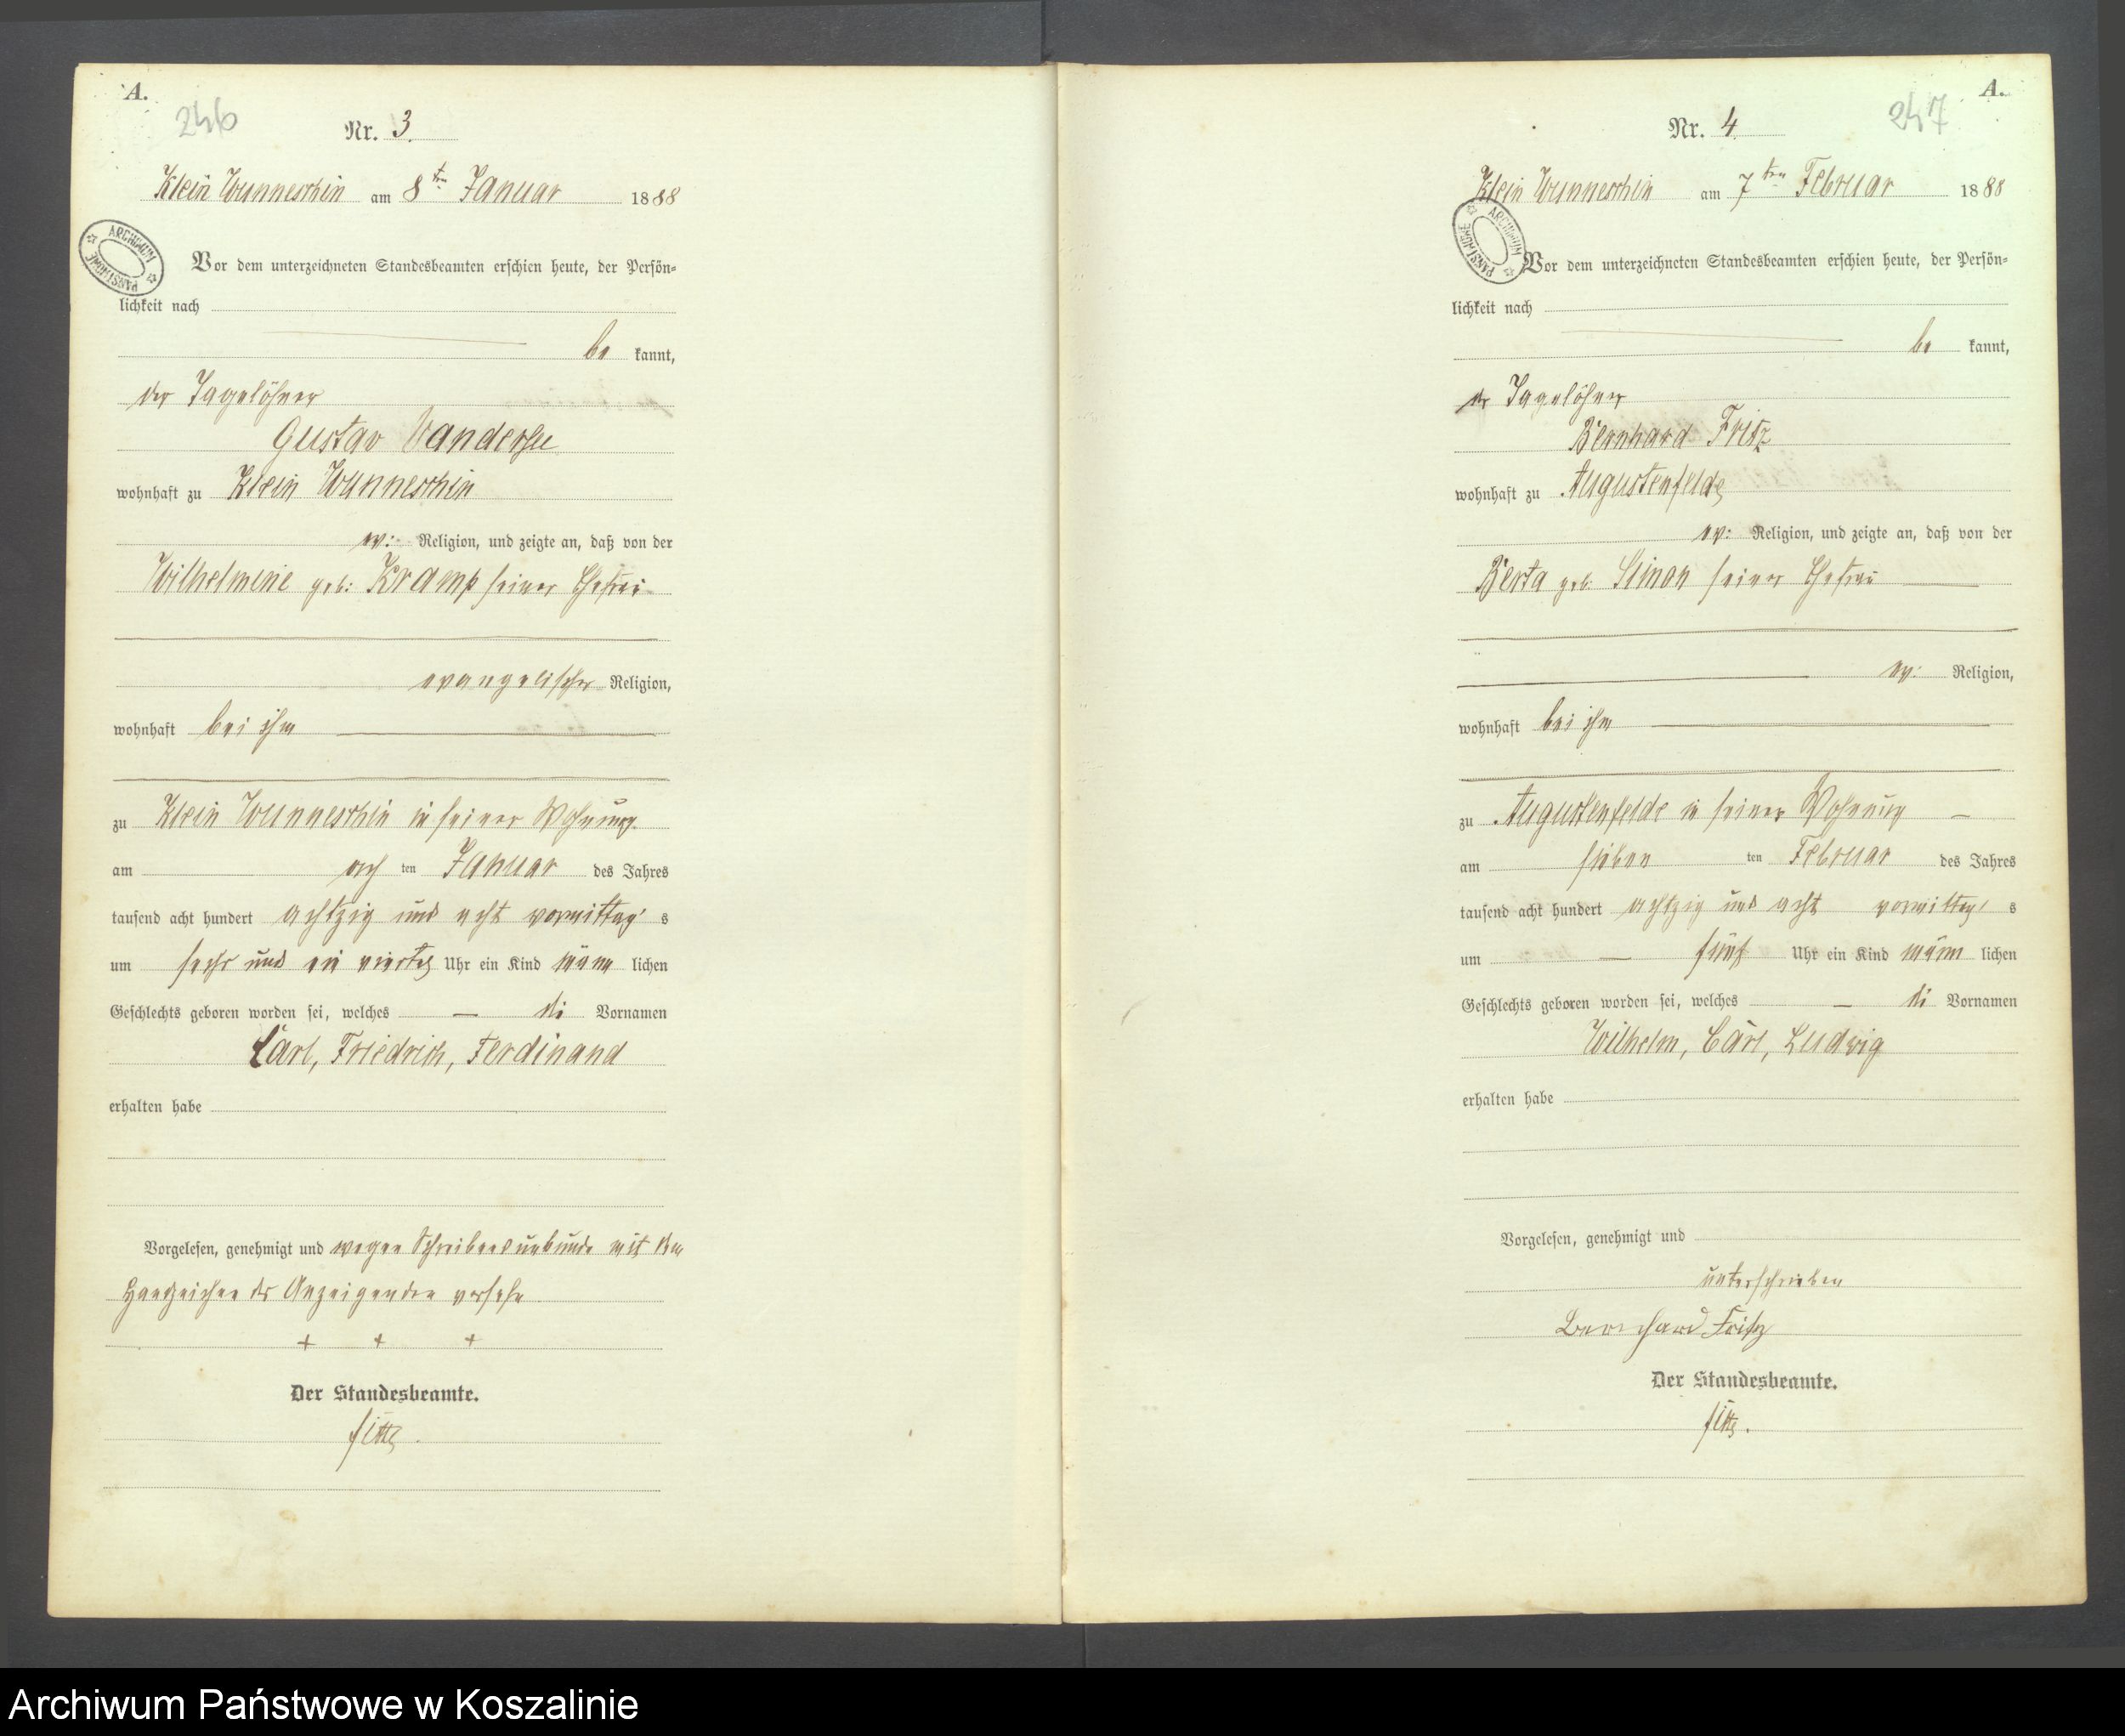 A.
246
Nr. 3.
Klein Wunneschin am 8ten Januar 1888
ARCHIWUM PAŃSTWOWE
Vor dem unterzeichneten Standesbeamten erschien heute, der Persön=
lichkeit nach
be kannt,
der Tagelöhner
Gustav Vandersee
wohnhaft zu Klein Wunneschin
ev: Religion, und zeigte an, daß von der
Wilhelmine geb: Kramp seiner Ehefrau
evangelischer Religion,
wohnhaft bei ihm
zu Klein Wunneschin in seiner Wohnung
am ach ten Januar des Jahres
tausend acht hundert achtzig und acht vormittag s
um sechs und ein viertel Uhr ein Kind männ lichen
Geschlechts geboren worden sei, welches — die Vornamen
Carl, Friedrich, Ferdinand
erhalten habe
Vorgelesen, genehmigt und wegen Schreibensunkunde mit dem
Handzeichen des Anzeigenden versehn
+ + +
Der Standesbeamte.
A.
247
Nr. 4
Klein Wunneschin am 7ten Februar 1888
ARCHIWUM PAŃSTWOWE
Vor dem unterzeichneten Standesbeamten erschien heute, der Persön=
lichkeit nach
be kannt,
der Tagelöhner
Bernhard Fritz
wohnhaft zu Augustenfelde
ev: Religion, und zeigte an, daß von der
Berta geb. Simon seiner Ehefrau
ev: Religion,
wohnhaft bei ihm
zu Augustenfelde in seiner Wohnung —
am sieben ten Februar des Jahres
tausend acht hundert achtzig und acht vormittag s
um — fünf Uhr ein Kind männ lichen
Geschlechts geboren worden sei, welches — die Vornamen
Wilhelm, Carl, Ludwig
erhalten habe
Vorgelesen, genehmigt und
unterschrieben
Bernhard Fritz
Der Standesbeamte.
Archiwum Państwowe w Koszalinie